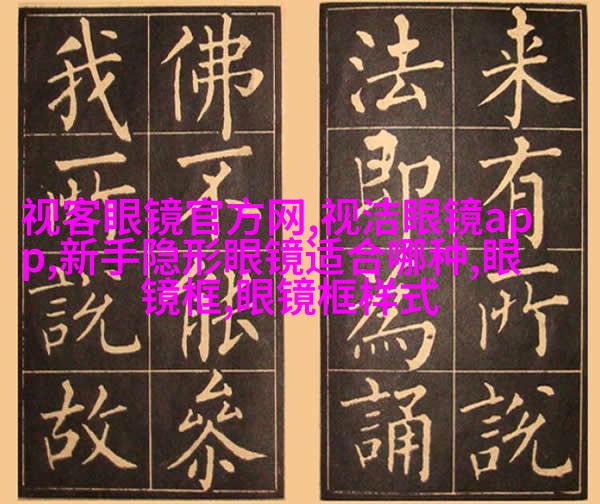 视客眼镜官方网,视洁眼镜ap
p,新手隐形眼镜适合哪种,眼
镜框,眼镜框样式
来有所説
法即為誦
佛不能叅
我所説故